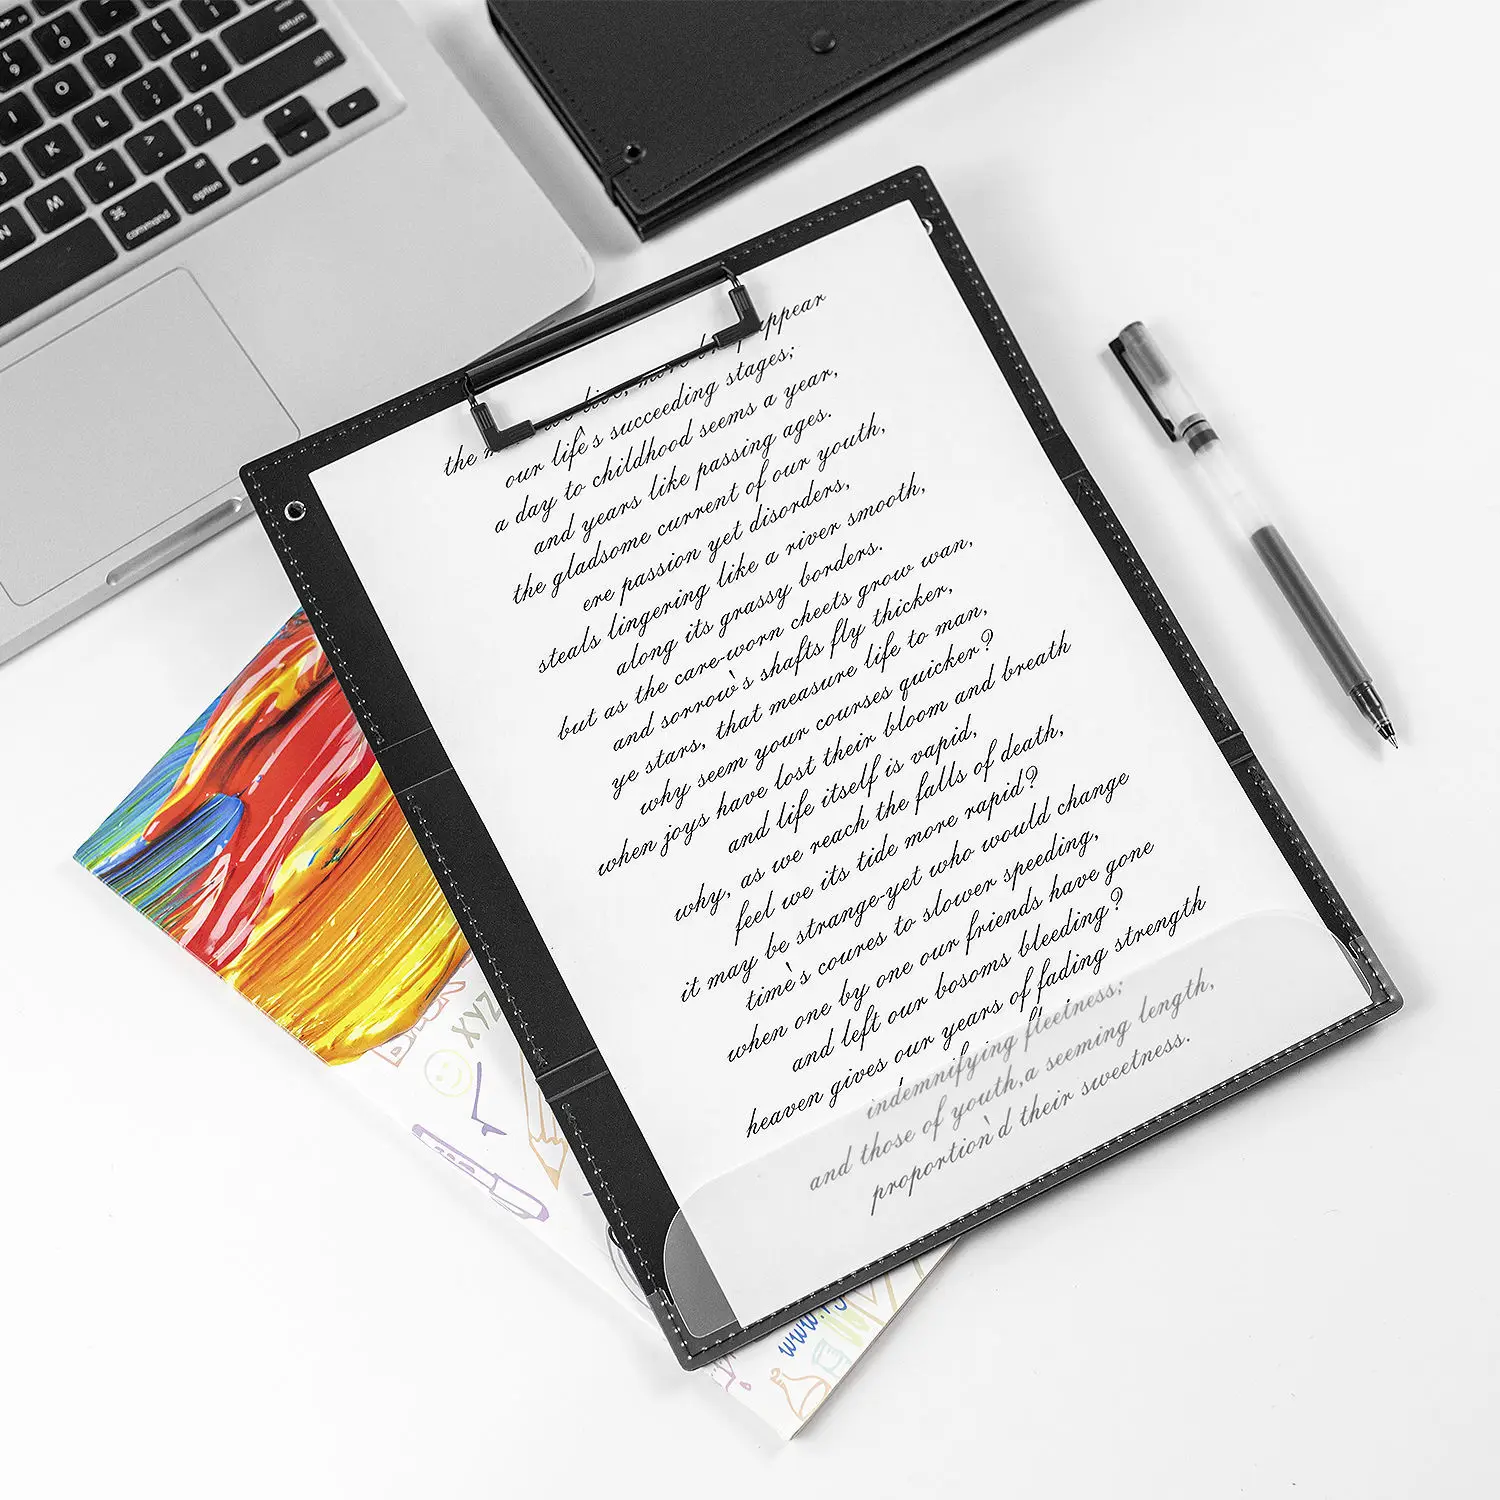 return
shift
O
P
L
K
M
N
alt
option
⌘
command
the
appear
our life`s succeeding stages;
a day to childhood seems a year,
and years like passing ages.
the gladsome current of our youth,
ere passion yet disorders,
steals lingering like a river smooth,
along its grassy borders.
but as the care-worn cheets grow wan,
and sorrow`s shafts fly thicker,
ye stars, that measure life to man,
why seem your courses quicker?
when joys have lost their bloom and breath
and life itself is vapid,
why, as we reach the falls of death,
feel we its tide more rapid?
it may be strange-yet who would change
time`s coures to slower speeding,
when one by one our friends have gone
and left our bosoms bleeding?
heaven gives our years of fading strength
indemnifying fleetness;
and those of youth,a seeming length,
proportion`d their sweetness.
XYZ
www.